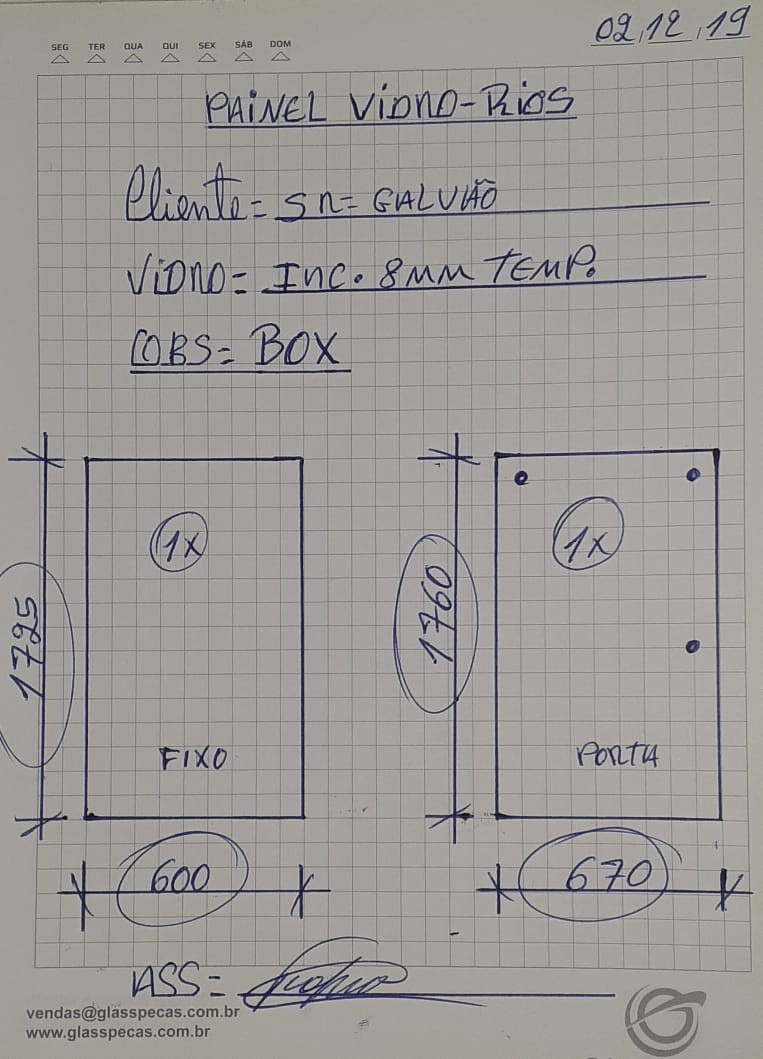 02,12,19
SEG TER QUA QUI SEX SÁB DOM
PAINEL VIDRO-RIOS
Cliente= SR= GALVÃO
VIDRO= INC. 8MM TEMP.
OBS= BOX
1x
1x
1725
1760
FIXO
PORTA
600
670
ASS=
vendas@glasspecas.com.br
www.glasspecas.com.br